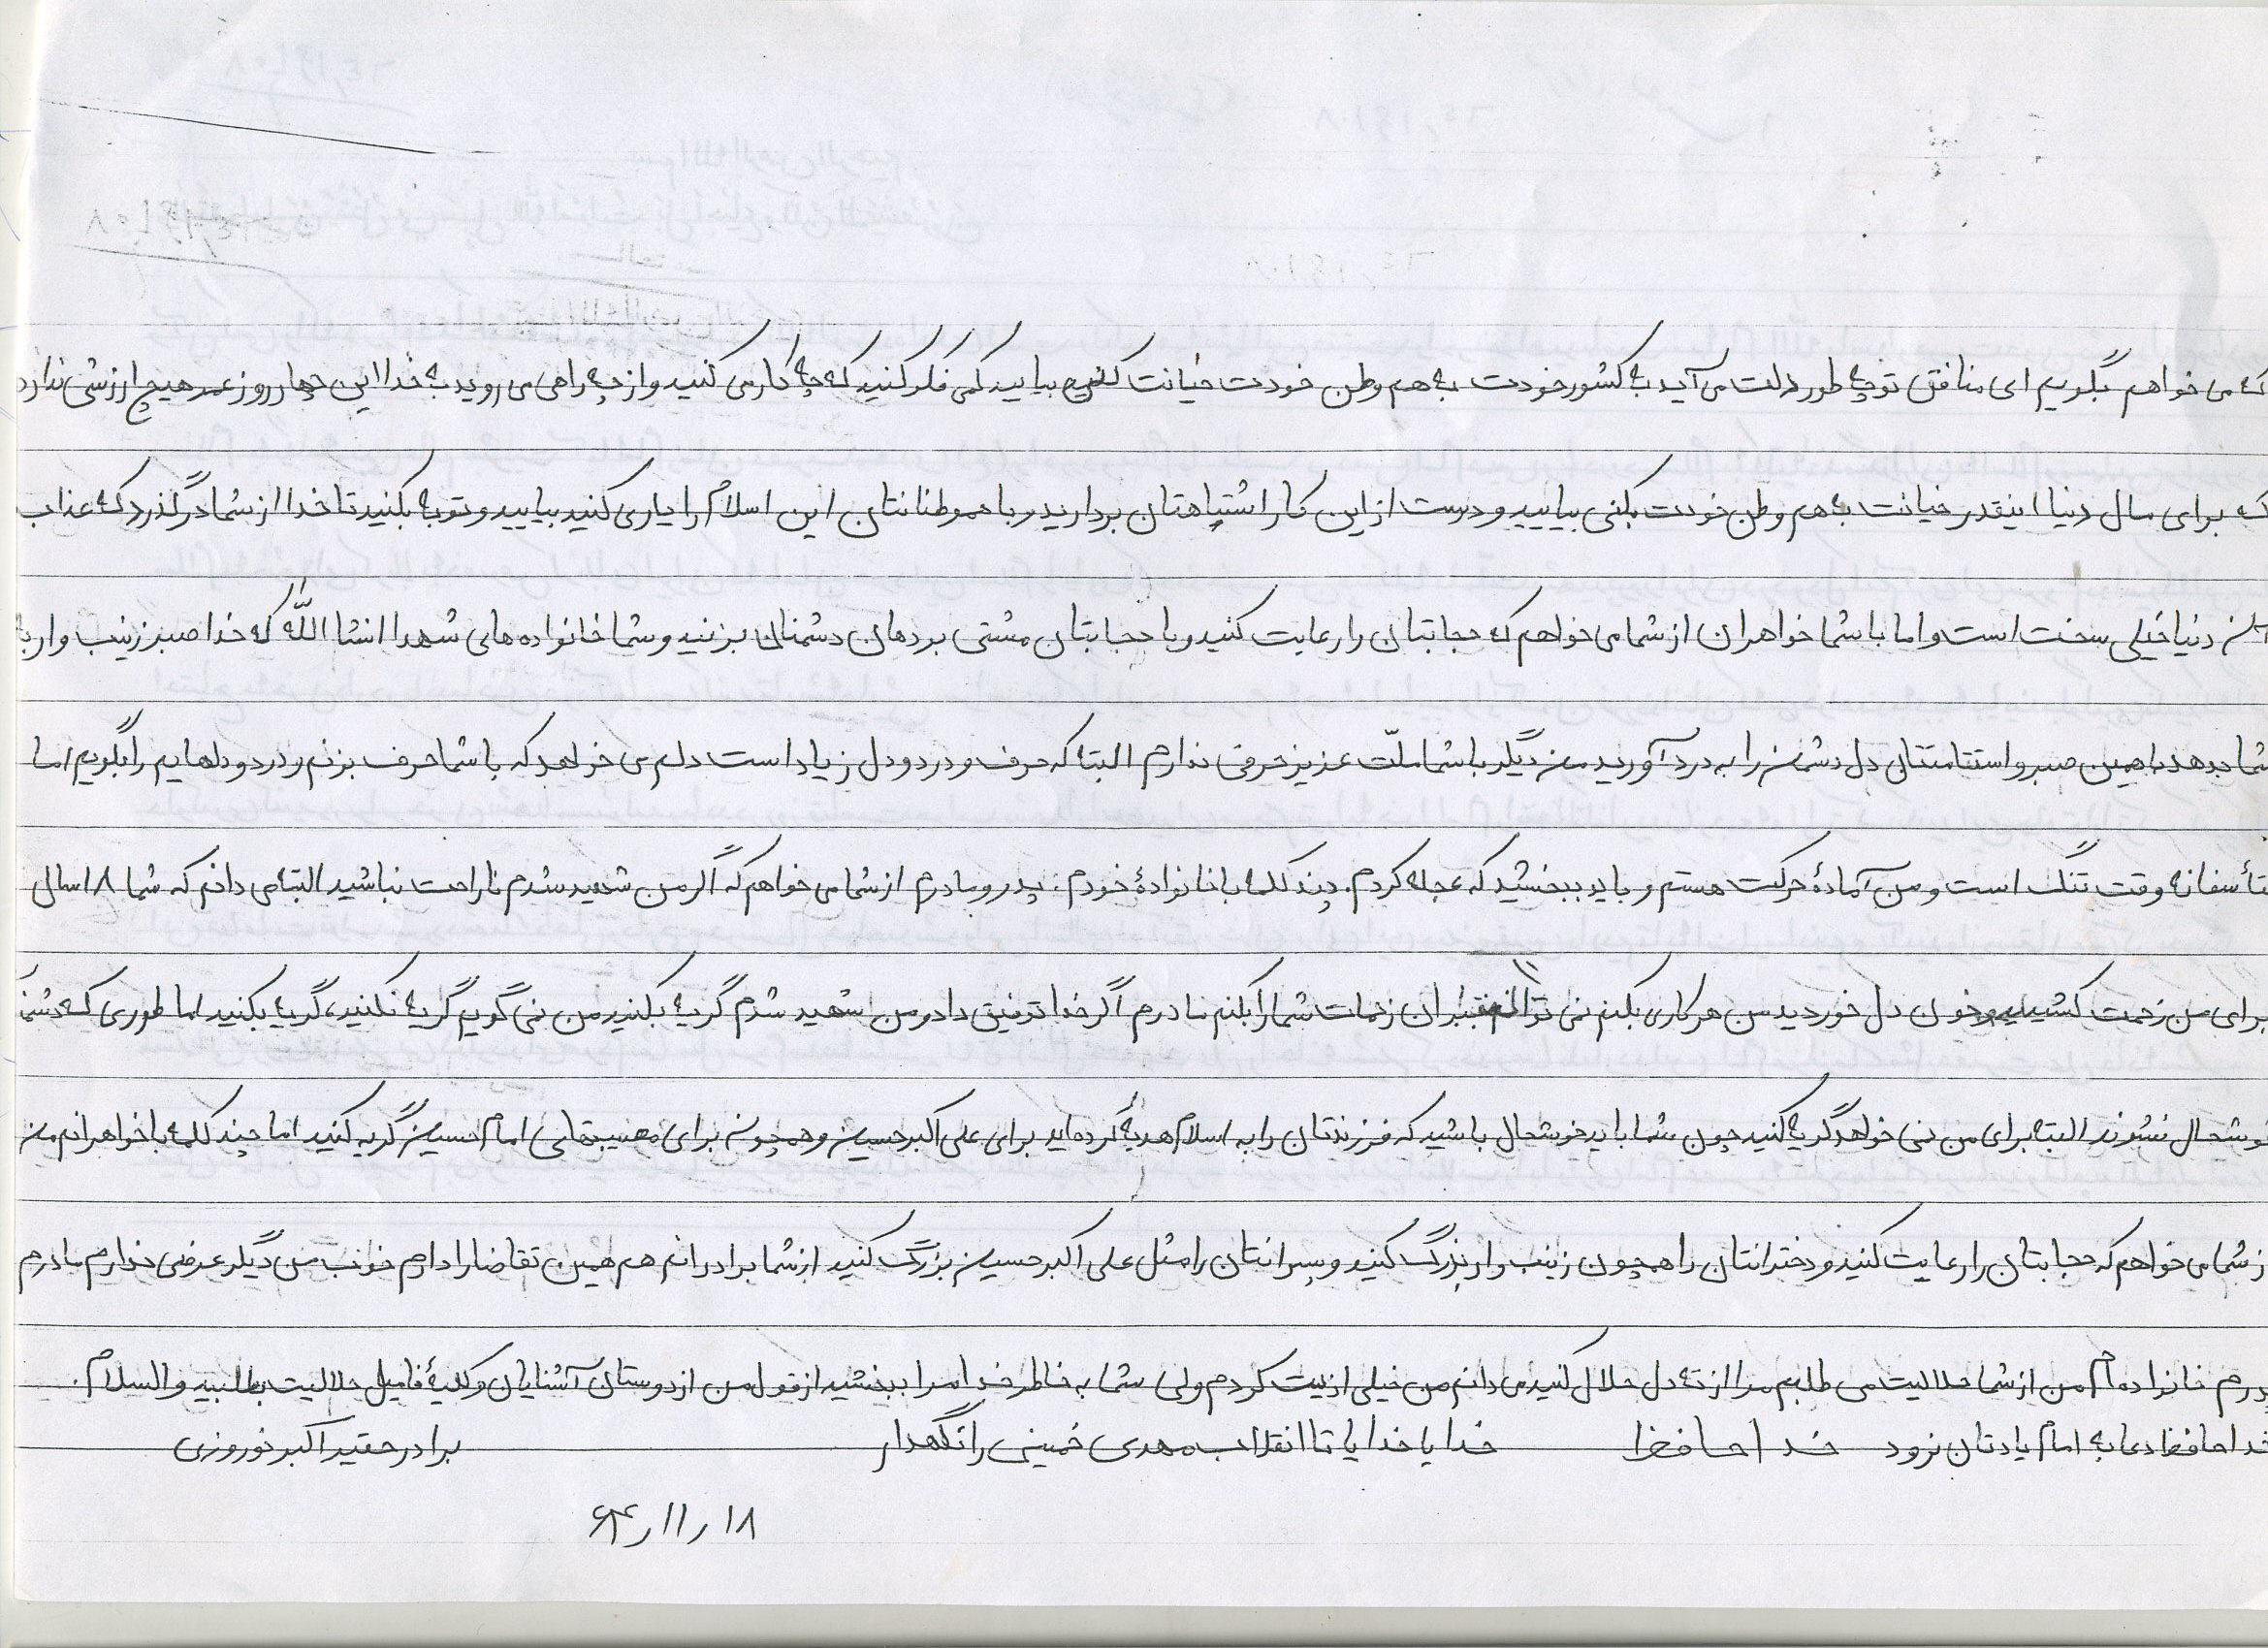 که می خواهم بگویم ای منافق تو چه طور دلت می آید به کشور خودت به هم وطن خودت خیانت کنی بیایید کمی فکر کنید که چه کار می کنید و از چه راهی می روید به خدا این چهار روز عمر هیچ ارزشی ندارد
که برای مال دنیا اینقدر خیانت به هم وطن خودت بکنی بیایید و دست از این کار اشتباهتان بردارید و با هموطنانتان این اسلام را یاری کنید بیایید و توبه بکنید تا خدا از شما درگذرد که عذاب
دنیا خیلی سخت است و اما با شما خواهران از شما می خواهم که حجابتان را رعایت کنید و با حجابتان مشتی بر دهان دشمنان بزنید و شما خانواده های شهدا انشا الله که خدا صبر زینب وار به
شما بدهد با همین صبر و استقامتتان دل دشمن را به درد آورید من دیگر با شما ملّت عزیز حرفی ندارم البته که حرف و درد و دل زیاد است دلم می خواهد که با شما حرف بزنم و درد و دلهایم را بگویم اما
متأسفانه وقت تنگ است و من آمادهٔ حرکت هستم و باید ببخشید که عجله کردم. چند کلمه با خانوادهٔ خودم: پدر و مادرم از شما می خواهم که اگر من شهید شدم ناراحت نباشید البته می دانم که شما ۱۸ سال
برای من زحمت کشیدید و خون دل خوردید من هر کاری بکنم نمی توانم جبران زحمات شما را بکنم مادرم اگر خدا توفیق داد و من شهید شدم گریه بکنید من نمی گویم گریه نکنید، گریه بکنید اما طوری که دشمنان
خوشحال نشوند البته برای من نمی خواهد گریه کنید چون شما باید خوشحال باشید که فرزندتان را به اسلام هدیه کرده اید برای علی اکبر حسین و همچون برای مصیبتهای امام حسین گریه کنید اما چند کلمه با خواهرانم من
از شما می خواهم که حجابتان را رعایت کنید و دخترانتان را همچون زینب وار بزرگ کنید و پسرانتان را مثل علی اکبر حسین بزرگ کنید از شما برادرانم هم همین تقاضا را دارم خوب من دیگر عرضی ندارم مادرم
پدرم خانواده ام من از شما حلالیت می طلبم مرا از ته دل حلال کنید می دانم من خیلی اذیت کردم ولی شما به خاطر خدا مرا ببخشید از قول من از دوستان آشنایان و کلیهٔ فامیل حلالیت بطلبید والسلام.
خداحافظ دعا به امام یادتان نرود خداحافظ خدایا خدایا تا انقلاب مهدی خمینی را نگهدار برادر حقیر اکبر نوروزی
۶۴٫۱۱٫۱۸